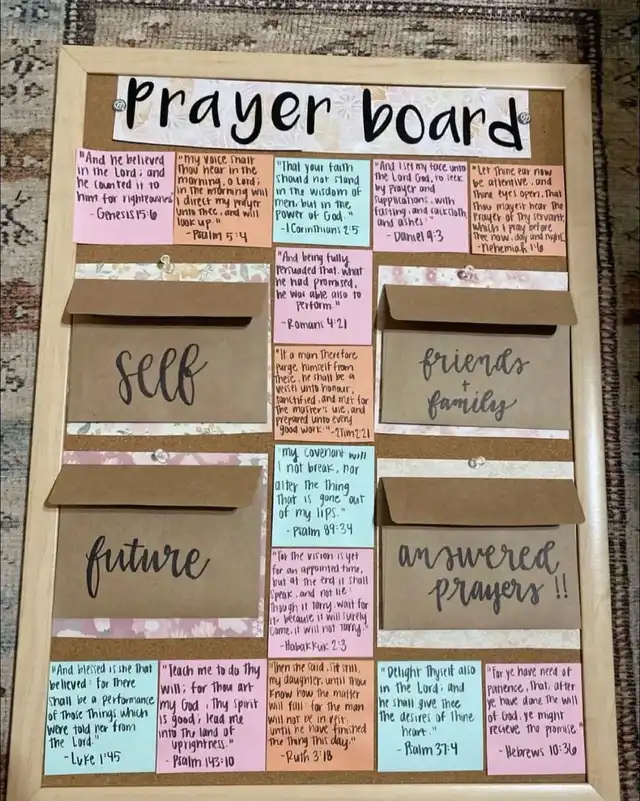 prayer board
"And he believed
in the Lord; and
he counted it to
him for righteousness"
- Genesis 15:6
"my voice shalt
thou hear in the
morning, o Lord;
in the morning will
I direct my prayer
unto Thee, and will
look up."
- Psalm 5:4
"That your faith
should not stand
in the wisdom of
men, but in the
power of God."
- 1 Corinthians 2:5
"And I set my face unto
the Lord God, to seek
by prayer and
supplications, with
fasting, and sackcloth,
and ashes:"
- Daniel 9:3
"Let Thine ear now
be attentive, and
Thine eyes open, that
Thou mayest hear the
Prayer of Thy servant,
which I pray before
Thee now, day and night,"
- Nehemiah 1:6
"And being fully
persuaded that, what
he had promised,
he was able also to
perform."
- Romans 4:21
self
friends
+
family
"If a man Therefore
purge himself from
These, he shall be a
vessel unto honour,
sanctified, and met for
The master's use, and
prepared unto every
good work." - 2 Tim 2:21
"my covenant will
I not break, nor
alter the Thing
That is gone out
of my lips."
- Psalm 89:34
future
answered
prayers!!
"For the vision is yet
for an appointed time,
but at the end it shall
speak, and not lie:
Though it tarry, wait for
it; because it will surely
come, it will not tarry."
- Habakkuk 2:3
"And blessed is she that
believed: for There
shall be a performance
of Those Things which
were told her from
The Lord."
- Luke 1:45
"Teach me to do Thy
will; for Thou art
my God: Thy spirit
is good; lead me
into The land of
uprightness."
- Psalm 143:10
"Then she said, Sit still,
my daughter, until thou
Know how the matter
will fall: for the man
will not be in rest,
until he have finished
the Thing This day."
- Ruth 3:18
"Delight Thyself also
in the Lord; and
he shall give Thee
the desires of Thine
heart."
- Psalm 37:4
"For ye have need of
patience, That, after
ye have done The will
of God, ye might
recieve the promise"
- Hebrews 10:36